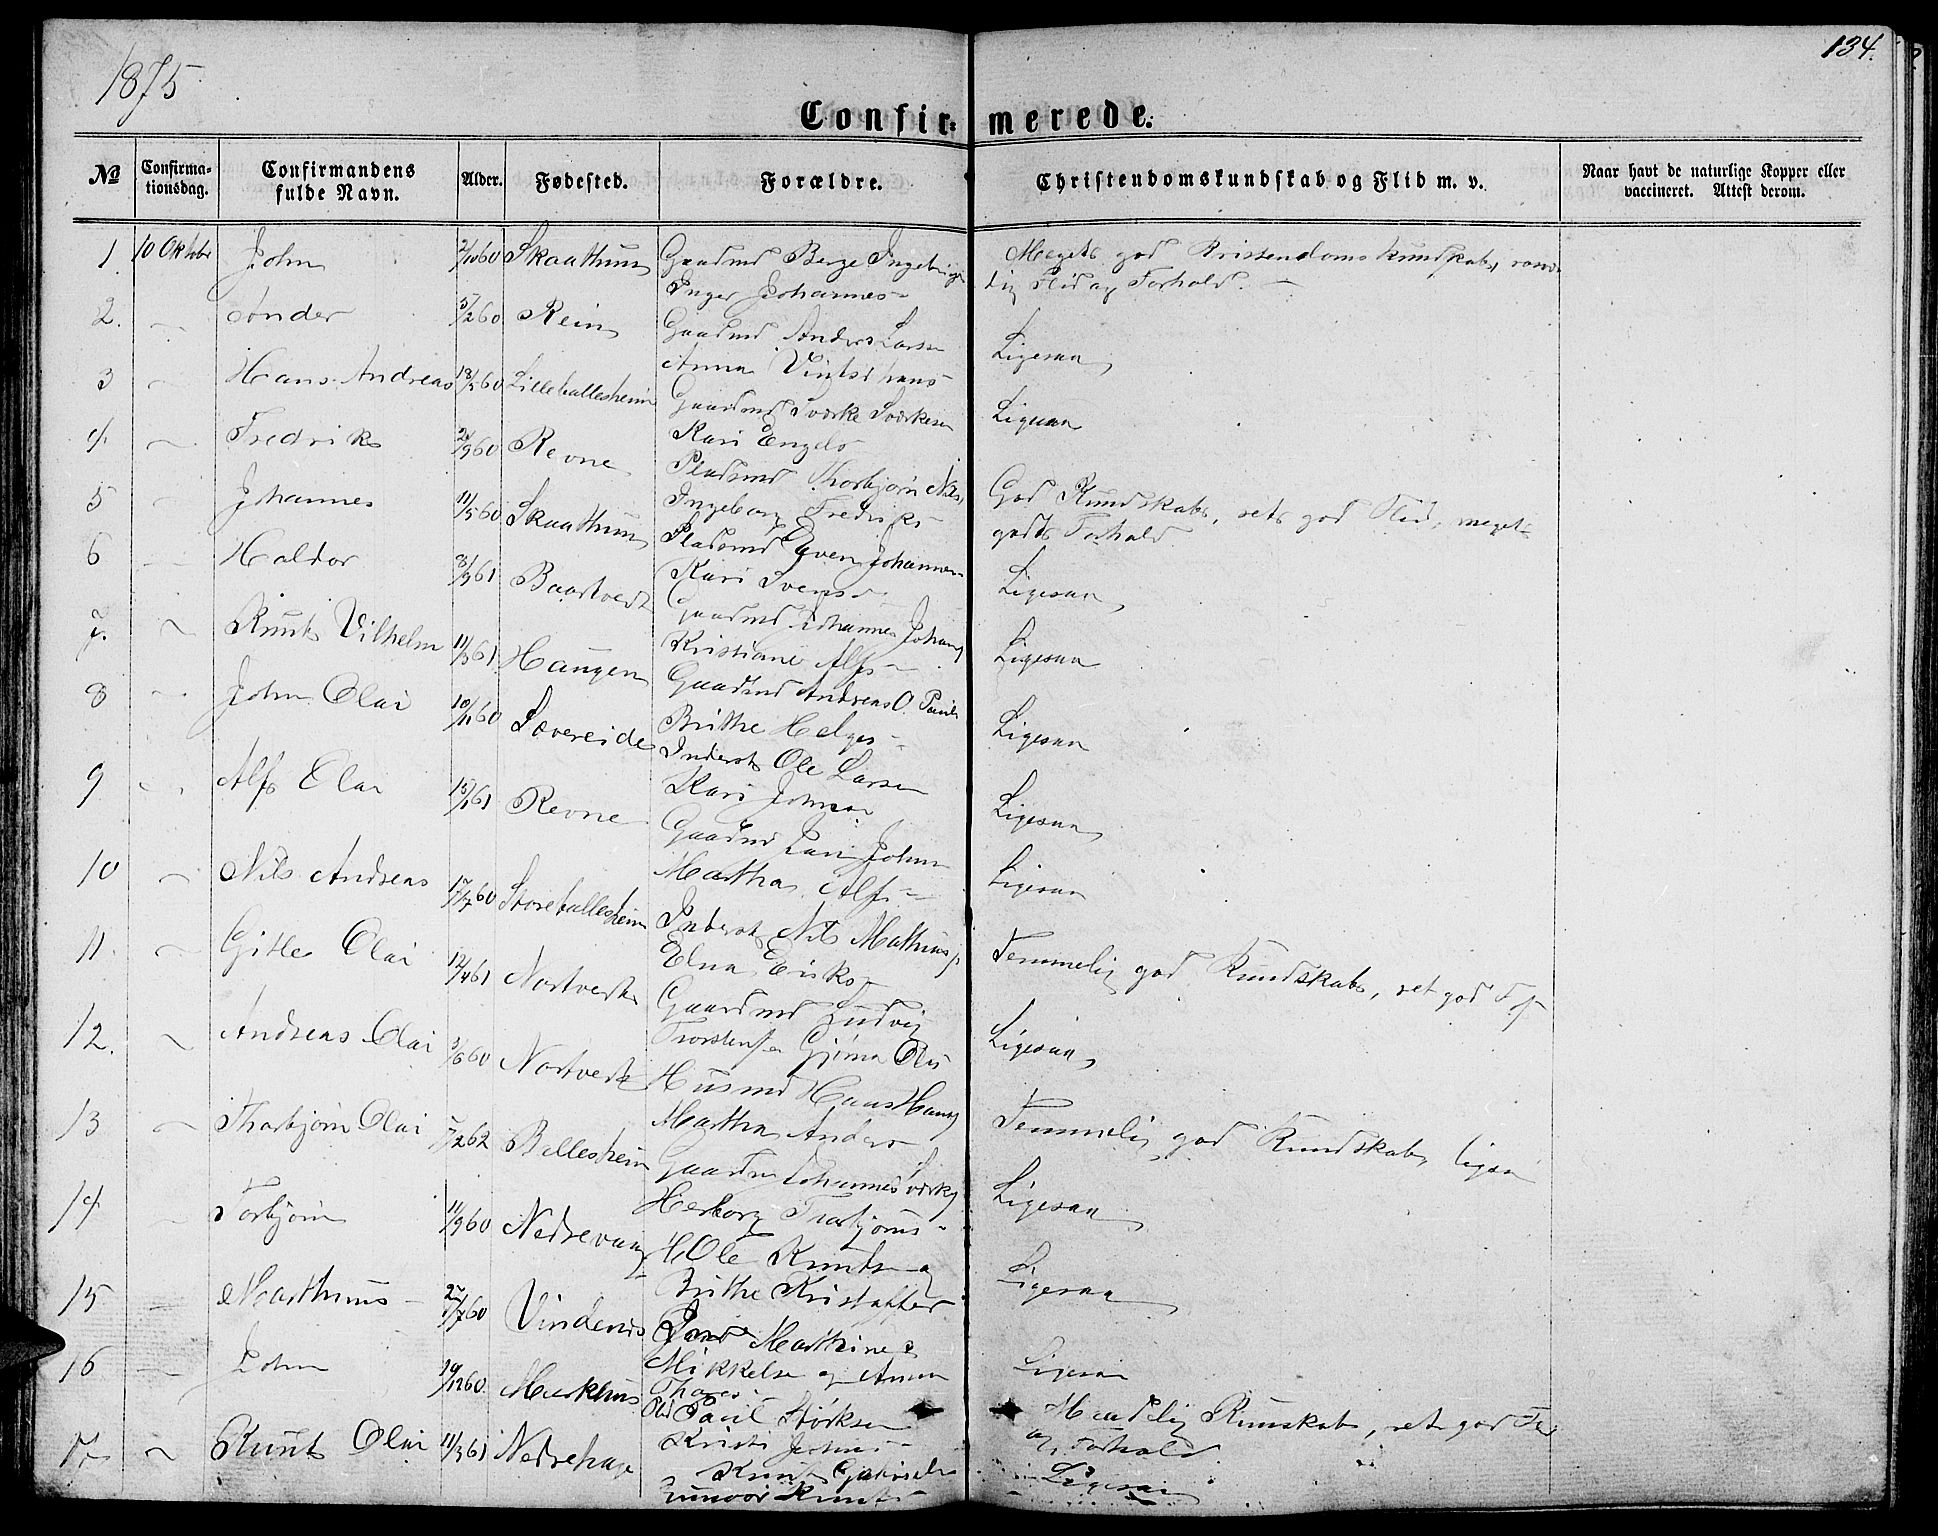 1875
134.
Confir- merede.
No
Confirma-
tionsdag.
Confirmandens
fulde Navn.
Alder.
Fødested.
Forældre.
Christendomskundskab og Flid m. v.
Naar havt de naturlige Kopper eller
vaccineret. Attest derom.
1. 10 Oktober John 2/10 60 Skaathun Gaardmd Berge
Inger Johannes-
Meget god Kristendomskundskab,
Flid og Forhold.
2. Sonder 5/2 60 Rein Gaardmd Anders Larsen
Anna
Ligesaa
3 Hans Andreas 18/5 60 Lilleballesheim Gaardmd Sværke Sværkesen
Kari Engels
Ligesaa
4 Fredrik 2/9 60 Revne Pladsmd Thorbjørn Nils
Ingeborg Fredriks-
God Kundskab, ret god Flid, meget
godt Forhold
5 Johannes 11/5 60 Skaathun Pladsmd Even Johannes-
Kari Svens-
Ligesaa
6 Haldor 8/9 61 Baartvedt Gaardmd Johannes Johans
Kristiane Alfs-
Ligesaa
7. Knut Vilhelm 11/3 61 Haugen Gaardmd Andreas O. Pauls
Brithe Helges-
Ligesaa
8 John Olai 10/11 60 Løvereide Inderst Ole Larsen
Kari Johnsen
Ligesaa
9 Alf Olai 15/1 61 Revne Gaardmd Lars John
Martha Alfs-
Ligesaa
10 Nils Andreas 17/7 60 Storeballesheim Inderst Nils Mathias
Elna Eriks
Temmelig god Kundskab, ret god
11. Gitle Olai 12/4 61 Nortvedt Gaardmd Ludvig
Torstensen Gjøma Ols
Ligesaa
12. Andreas Olai 3/6 60 Nortvedt Husmd Hans Hans
Martha Anders
Temmelig god Kundskab, ligesaa
13 Thorbjørn Olai 7/2 62 Ballesheim Gaardm Johannes Sværkes
Herborg Thorbjørns-
Ligesaa
14 Torbjørn 11/9 60 Nedrevaag Ole Knutsen og
Brithe Kristoffer
Ligesaa
15 Marthinus 27/7 60 Vindenes Marthine
Mikkelsen og Anna
Thores-
Ligesaa
16 John 19/12 60 Markhus Plds Paul Størksen
Kristi Johns-
Maadelig Kunskab, ret god
og Forhold
17 Knut Olai 11/3 61 Nedrehage Knut
Gunvor Knuts-
Ligesaa